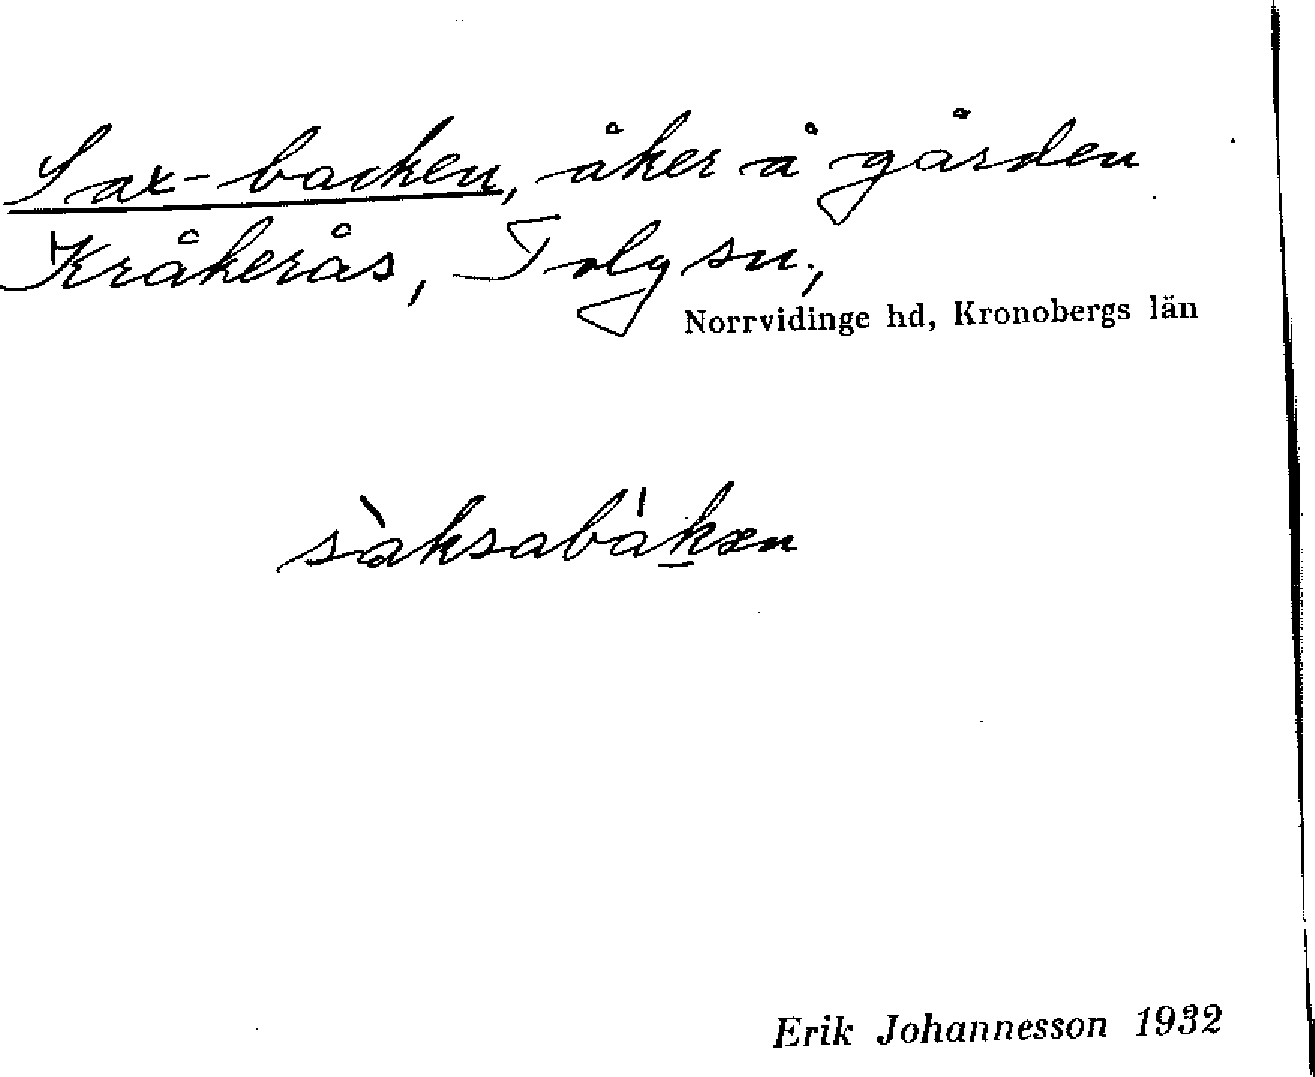 Sax-backen, åker å gården
Kråkerås, Tolg sn.,
Norrvidinge hd, Kronobergs län
sàksabákæn
Erik Johannesson 1932